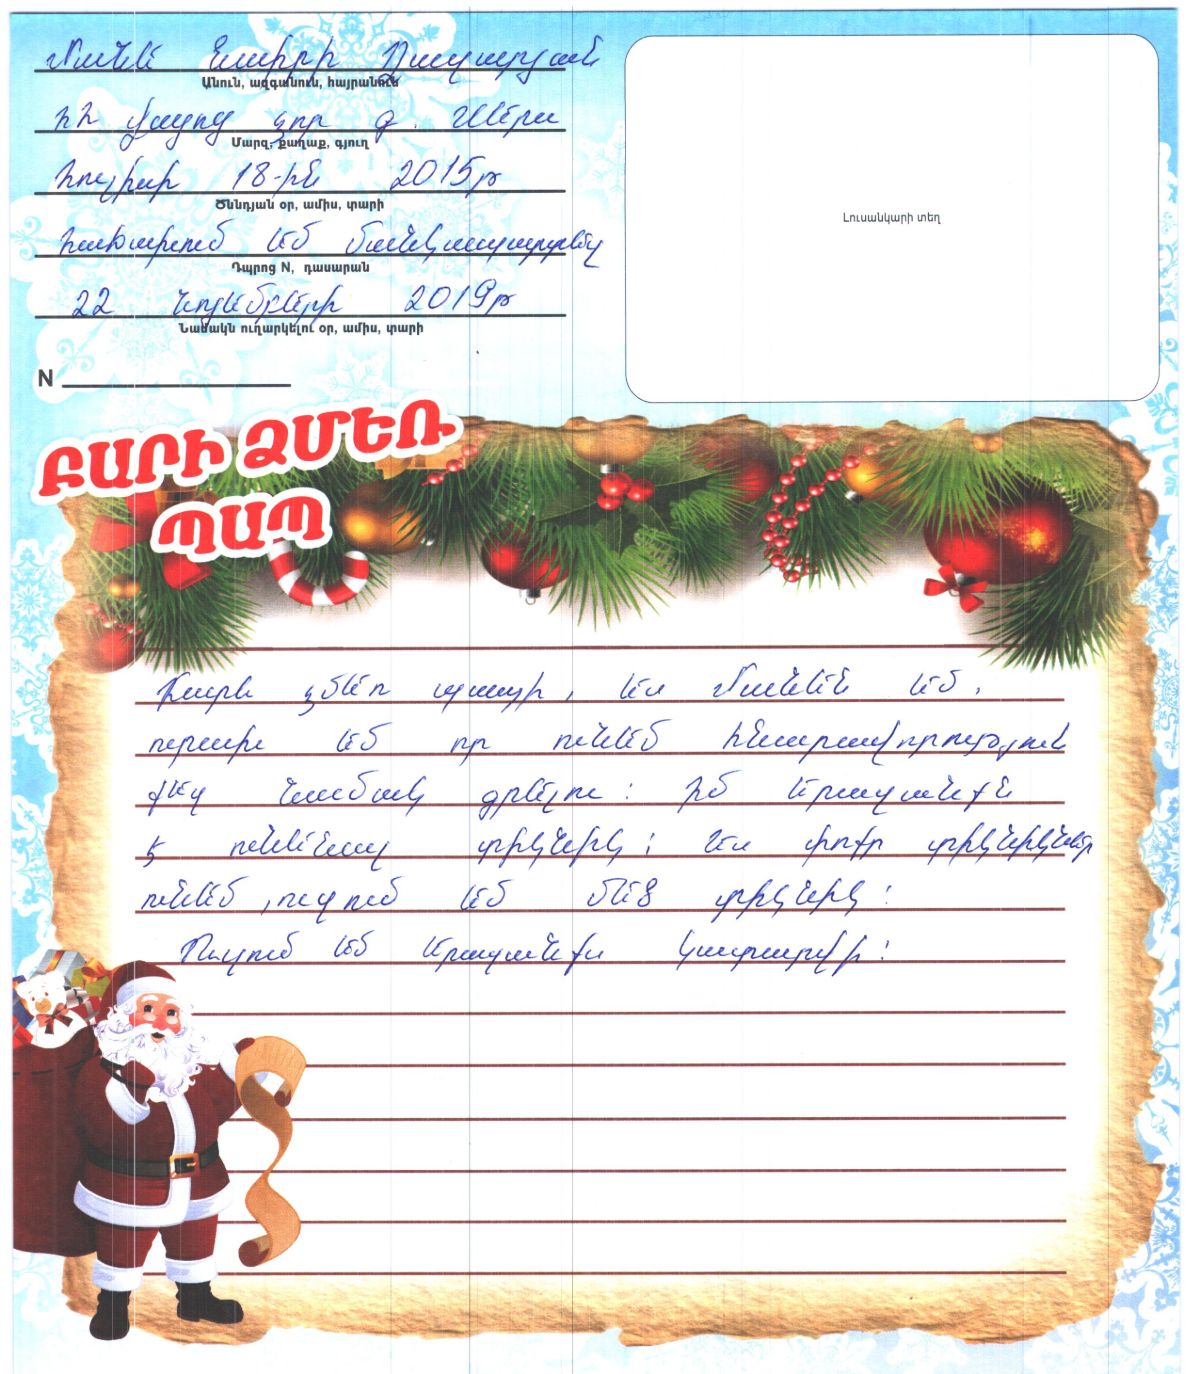 Մանե Նաիրի Ղազարյան
Անուն, ազգանուն, հայրանուն
ՀՀ Վայոց ձոր գ.
Մարզ, քաղաք, գյուղ
հուլիսի 18-ին 2015թ
Ծննդյան օր, ամիս, տարի
հաճախում եմ մանկապարտեզ
Դպրոց N, դասարան
22 նոյեմբերի 2019թ
Նամակն ուղարկելու օր, ամիս, տարի
Լուսանկարի տեղ
N
ԲԱՐԻ ՁՄԵՌ
ՊԱՊ
Բարև ձմեռ պապի, ես Մանեն եմ,
ուրախ եմ որ ունեմ հնարավորություն
քեզ նամակ գրելու: Իմ երազանքն
է ունենալ տիկնիկ: Ես փոքր տիկնիկներ
ունեմ, ուզում եմ մեծ տիկնիկ:
Ուզում եմ երազանքս կատարվի: